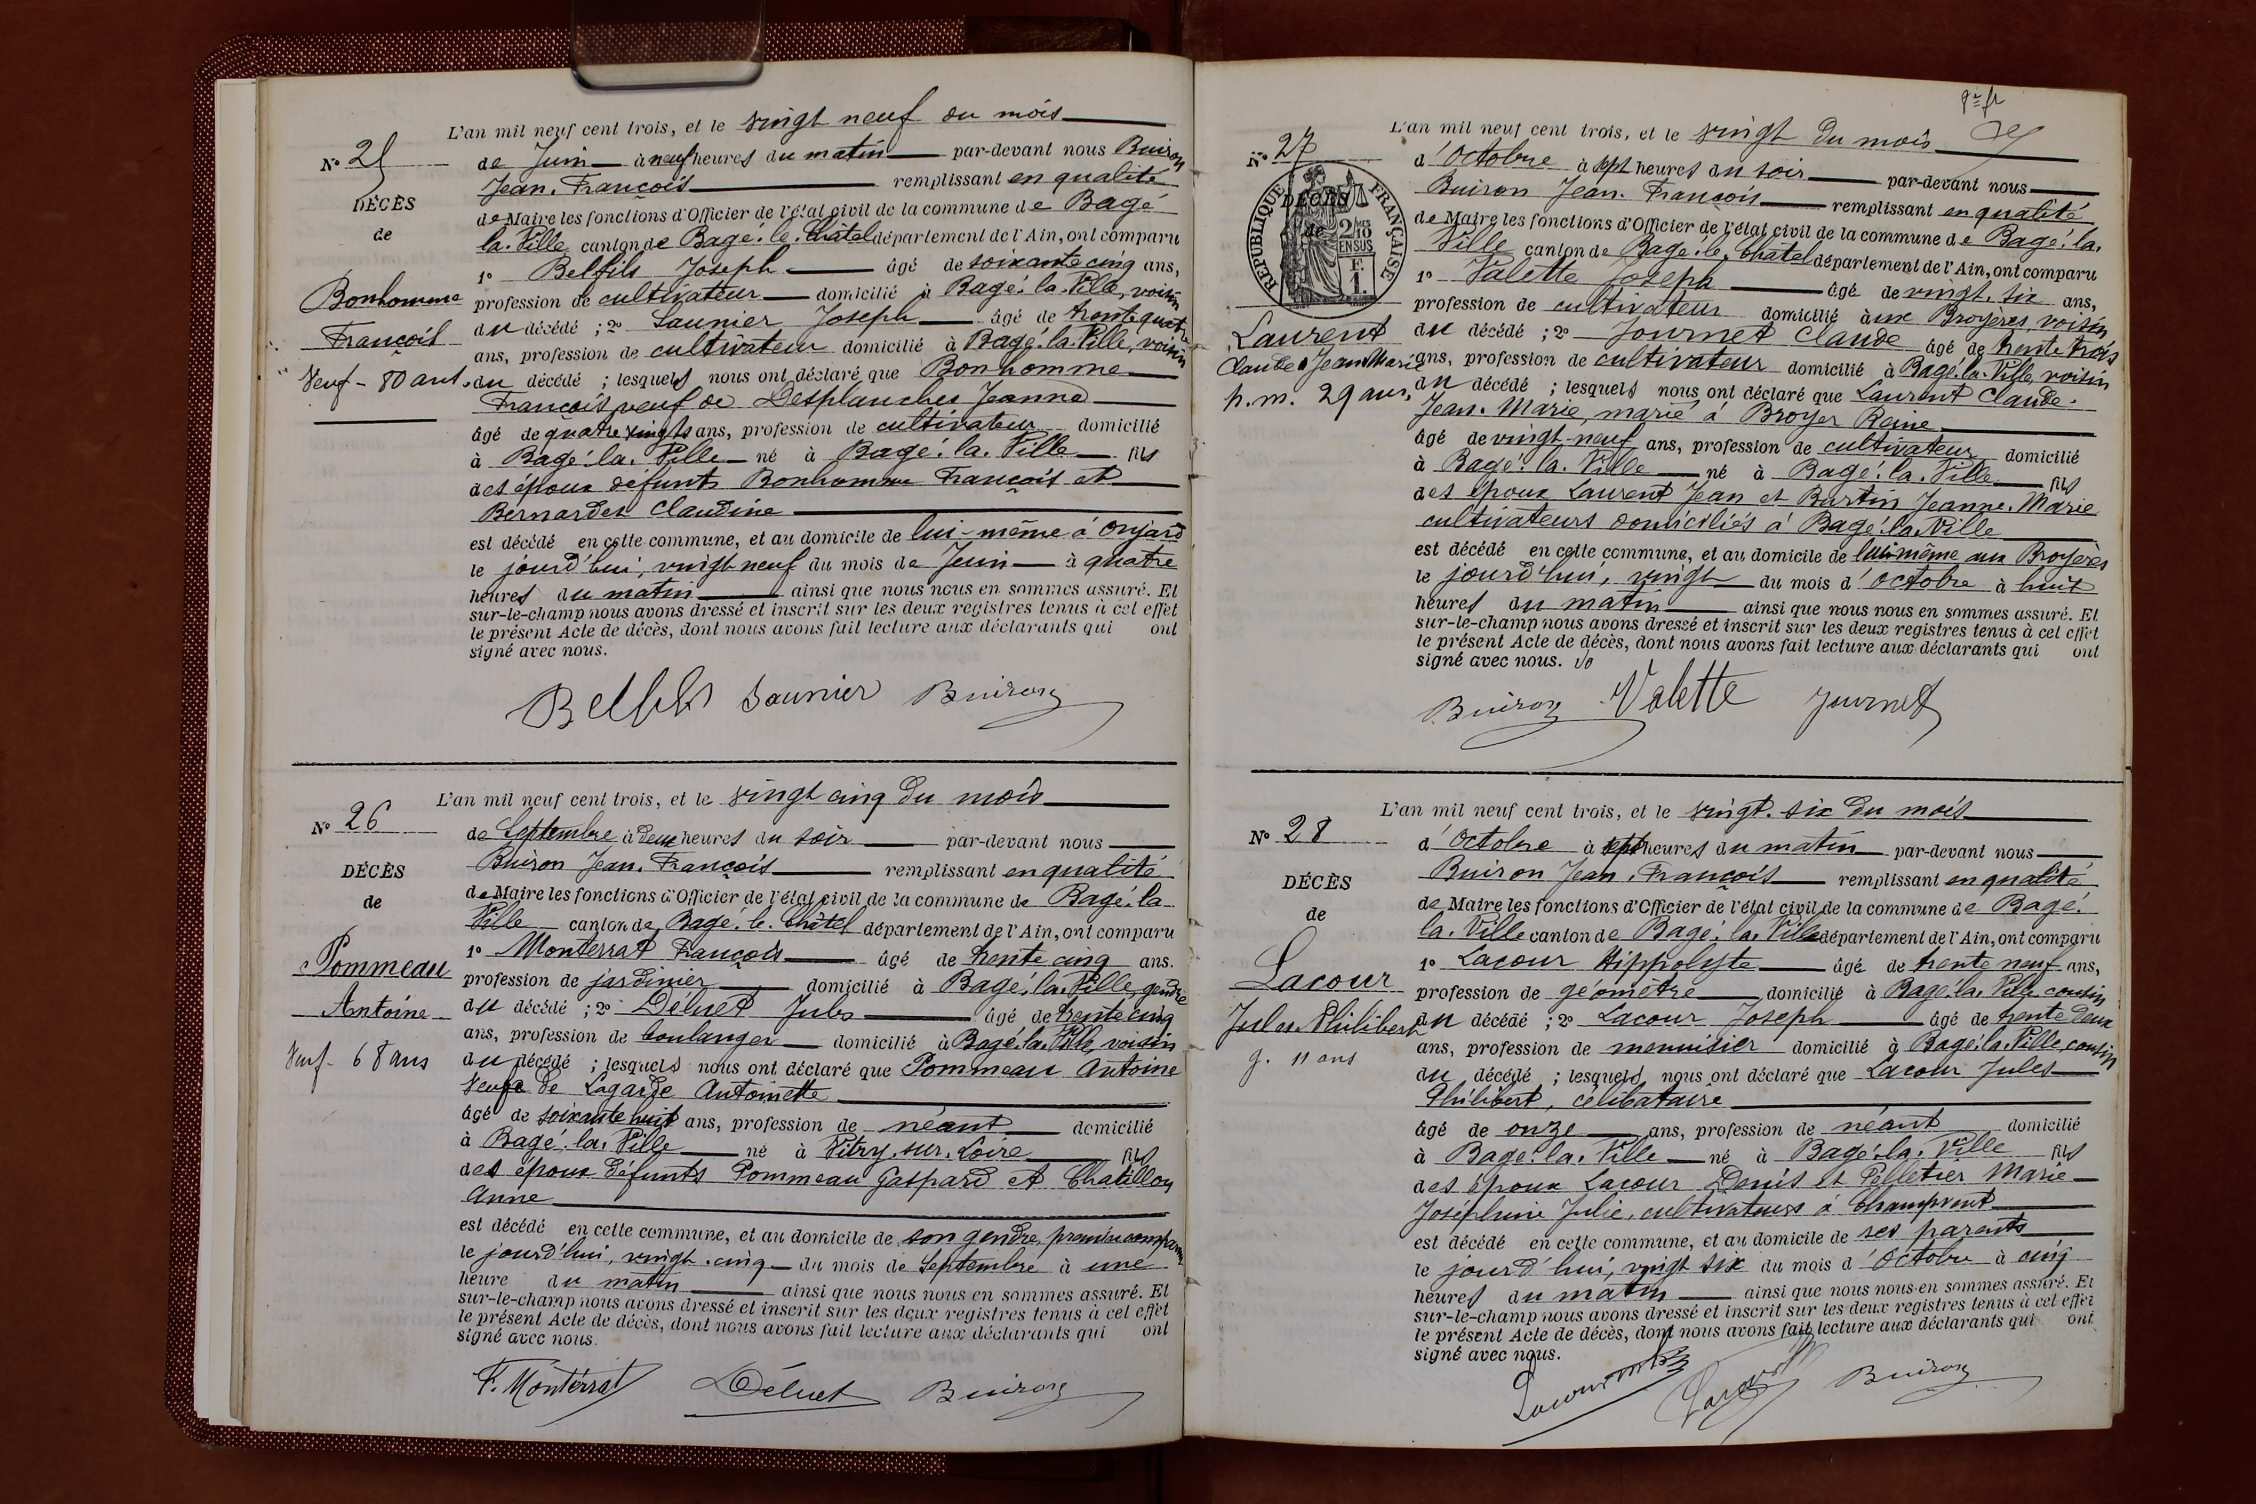 L'an mil neuf cent trois, et le vingt neuf du mois
N° 25
de Juin à neuf heures du matin par-devant nous Buiron
Jean. François remplissant en qualité
DÉCÈS
de Maire les fonctions d'Officier de l'état civil de la commune de Bagé
de
la. Ville canton de Bagé. le. Châtel département de l'Ain, ont comparu
1° Belfils Joseph âgé de soixante cinq ans,
Bonhomme
profession de cultivateur domicilié à Bagé. la. Ville, voisin
François
du décédé ; 2° Saunier Joseph âgé de trente quatre
ans, profession de cultivateur domicilié à Bagé. la. Ville, voisin
Veuf - 80 ans.
du décédé ; lesquels nous ont déclaré que Bonhomme
François veuf de Desplanches Jeanne
âgé de quatre vingts ans, profession de cultivateur domicilié
à Bagé. la. Ville né à Bagé. la. Ville fils
des époux défunts Bonhomme François et
Bernardet Claudine
est décédé en cette commune, et au domicile de lui-même à Onjard
le jourd'hui, vingt neuf du mois de Juin à quatre
heures du matin ainsi que nous nous en sommes assuré. Et
sur-le-champ nous avons dressé et inscrit sur les deux registres tenus à cet effet
le présent Acte de décès, dont nous avons fait lecture aux déclarants qui ont
signé avec nous.
Belfils Saunier Buiron
L'an mil neuf cent trois, et le vingt cinq du mois
N° 26
de Septembre à deux heures du soir par-devant nous
Buiron Jean. François remplissant en qualité
DÉCÈS
de Maire les fonctions d'Officier de l'état civil de la commune de Bagé. la
de
Ville canton de Bagé. le. Châtel département de l'Ain, ont comparu
1° Monterrat François âgé de trente cinq ans.
Pommeau
profession de jardinier domicilié à Bagé. la. Ville, gendre
Antoine
du décédé ; 2° Déluet Jules âgé de trente cinq
ans, profession de boulanger domicilié à Bagé. la. Ville, voisin
Veuf - 68 ans
du décédé ; lesquels nous ont déclaré que Pommeau Antoine
de Lagarde Antoinette
âgé de soixante huit ans, profession de néant domicilié
à Bagé. la. Ville né à Vitry. sur. Loire fils
des époux défunts Pommeau Gaspard et Chatillon
Anne
est décédé en cette commune, et au domicile de son gendre, premier comparant
le jourd'hui, vingt. cinq du mois de Septembre à une
heure du matin ainsi que nous nous en sommes assuré. Et
sur-le-champ nous avons dressé et inscrit sur les deux registres tenus à cet effet
le présent Acte de décès, dont nous avons fait lecture aux déclarants qui ont
signé avec nous.
F. Montérrat Déluet Buiron
L'an mil neuf cent trois, et le vingt du mois
N° 27
d'Octobre à sept heures du soir par-devant nous
Buiron Jean. François remplissant en qualité
DÉCÈS
de
RÉPUBLIQUE FRANÇAISE
2/10
EN SUS
F.
1.
de Maire les fonctions d'Officier de l'état civil de la commune de Bagé. la.
Ville canton de Bagé. le. Châtel département de l'Ain, ont comparu
1° Valette Joseph âgé de vingt. six ans,
profession de cultivateur domicilié aux Broyères, voisin
Laurent
du décédé ; 2° Journet Claude âgé de trente trois
Claude Jean Marie
ans, profession de cultivateur domicilié à Bagé. la. Ville, voisin
h. m. 29 ans.
du décédé ; lesquels nous ont déclaré que Laurent Claude.
Jean. Marie, marié à Broyer Reine
âgé de vingt-neuf ans, profession de cultivateur domicilié
à Bagé. la. Ville né à Bagé. la. Ville fils
des époux Laurent Jean et Burtin Jeanne. Marie
cultivateurs domiciliés à Bagé. la. Ville
est décédé en cette commune, et au domicile de lui même aux Broyères
le jourd'hui, vingt du mois d'Octobre à huit
heures du matin ainsi que nous nous en sommes assuré. Et
sur-le-champ nous avons dressé et inscrit sur les deux registres tenus à cet effet
le présent Acte de décès, dont nous avons fait lecture aux déclarants qui ont
signé avec nous.
Buiron Valette Journet
L'an mil neuf cent trois, et le vingt. six du mois
N° 28
d'Octobre à sept heures du matin par-devant nous
Buiron Jean. François remplissant en qualité
DÉCÈS
de Maire les fonctions d'Officier de l'état civil de la commune de Bagé.
de
la. Ville canton de Bagé. la. Ville département de l'Ain, ont comparu
1° Lacour Hippolyte âgé de trente neuf ans,
Lacour
profession de géomètre domicilié à Bagé. la. Ville, cousin
Jules. Philibert
du décédé ; 2° Lacour Joseph âgé de trente deux
ans, profession de menuisier domicilié à Bagé. la. Ville, cousin
g. 11 ans
du décédé ; lesquels nous ont déclaré que Lacour Jules
Philibert, célibataire
âgé de onze ans, profession de néant domicilié
à Bagé. la. Ville né à Bagé. la. Ville fils
des époux Lacour Denis et Pelletier Marie
Joséphine Julie, cultivateurs à Champvent
est décédé en cette commune, et au domicile de ses parents
le jourd'hui, vingt six du mois d'Octobre à cinq
heures du matin ainsi que nous nous en sommes assuré. Et
sur-le-champ nous avons dressé et inscrit sur les deux registres tenus à cet effet
le présent Acte de décès, dont nous avons fait lecture aux déclarants qui ont
signé avec nous.
Buiron